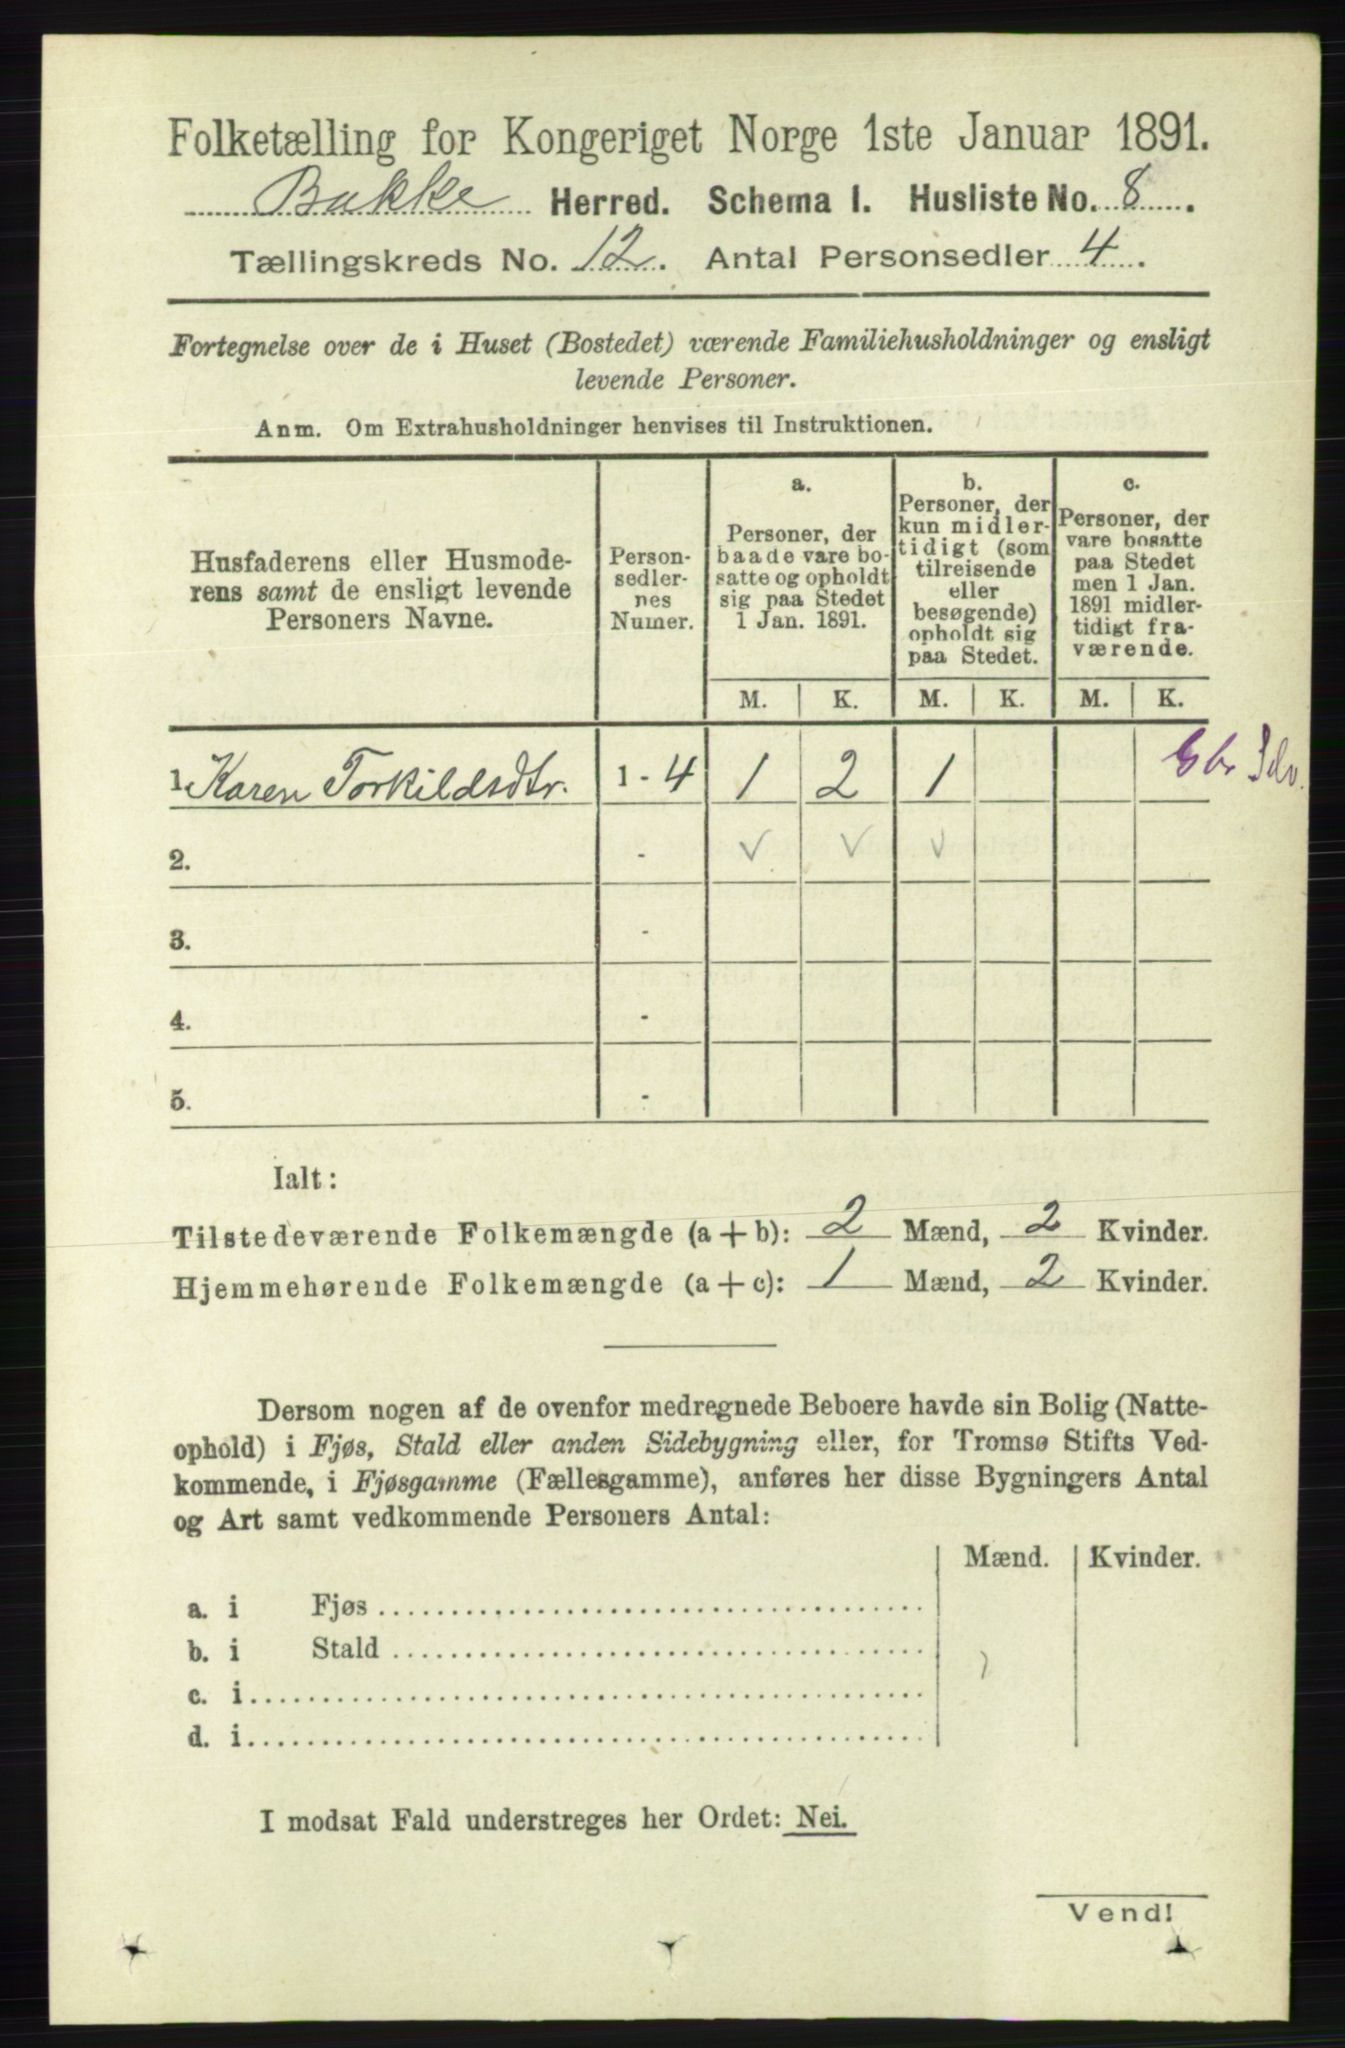 Folketælling for Kongeriget Norge 1ste Januar 1891.
Bakke Herred. Schema I. Husliste No. 8.
Tællingskreds No. 12. Antal Personsedler 4.
Fortegnelse over de i Huset (Bostedet) værende Familiehusholdninger og ensligt
levende Personer.
Anm. Om Extrahusholdninger henvises til Instruktionen.
Husfaderens eller Husmode-
rens samt de ensligt levende
Personers Navne.
Person-
sedler-
nes
Numer.
a.
Personer, der
baade vare bo-
satte og opholdt
sig paa Stedet
1 Jan. 1891.
b.
Personer, der
kun midler-
tidigt (som
tilreisende
eller
besøgende)
opholdt sig
paa Stedet.
c.
Personer, der
vare bosatte
paa Stedet
men 1 Jan.
1891 midler-
tidigt fra-
værende.
M. K. M. K. M. K.
1. Karen Torkildsdtr. 1 - 4 1 2 1
2. -
3. -
4. -
5. -
Ialt:
Tilstedeværende Folkemængde (a + b): 2 Mænd, 2 Kvinder.
Hjemmehørende Folkemængde (a + c): 1 Mænd, 2 Kvinder.
Dersom nogen af de ovenfor medregnede Beboere havde sin Bolig (Natte-
ophold) i Fjøs, Stald eller anden Sidebygning eller, for Tromsø Stifts Ved-
kommende, i Fjøsgamme (Fællesgamme), anføres her disse Bygningers Antal
og Art samt vedkommende Personers Antal:
Mænd. Kvinder.
a. i Fjøs
b. i Stald
c. i
d. i
I modsat Fald understreges her Ordet: Nei.
Vend!